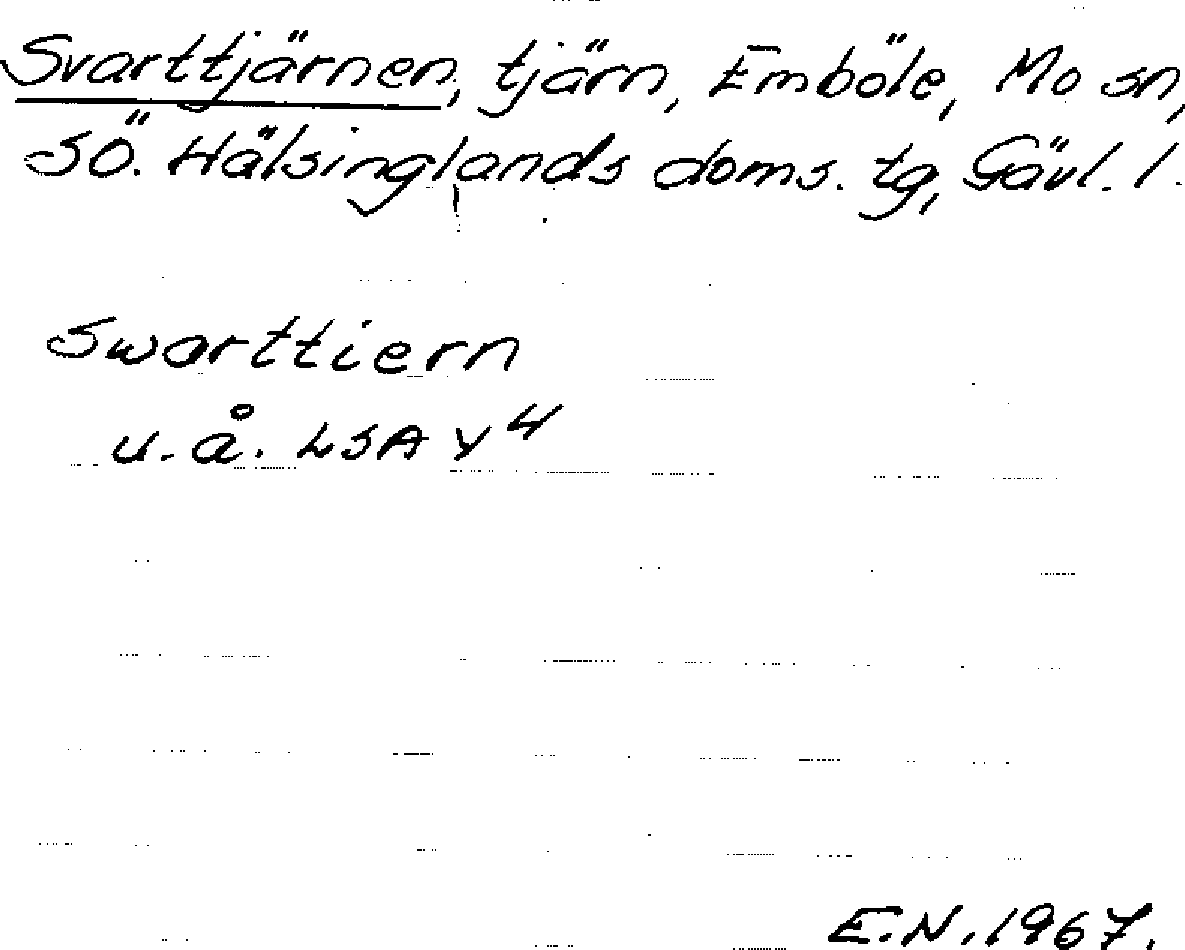 Svarttjärnen, tjärn, Emböle, Mo sn,
SÖ. Hälsinglands doms. tg, Gävl. l.
Swarttiern
u. å. LSA Y4
E.N. 1967.